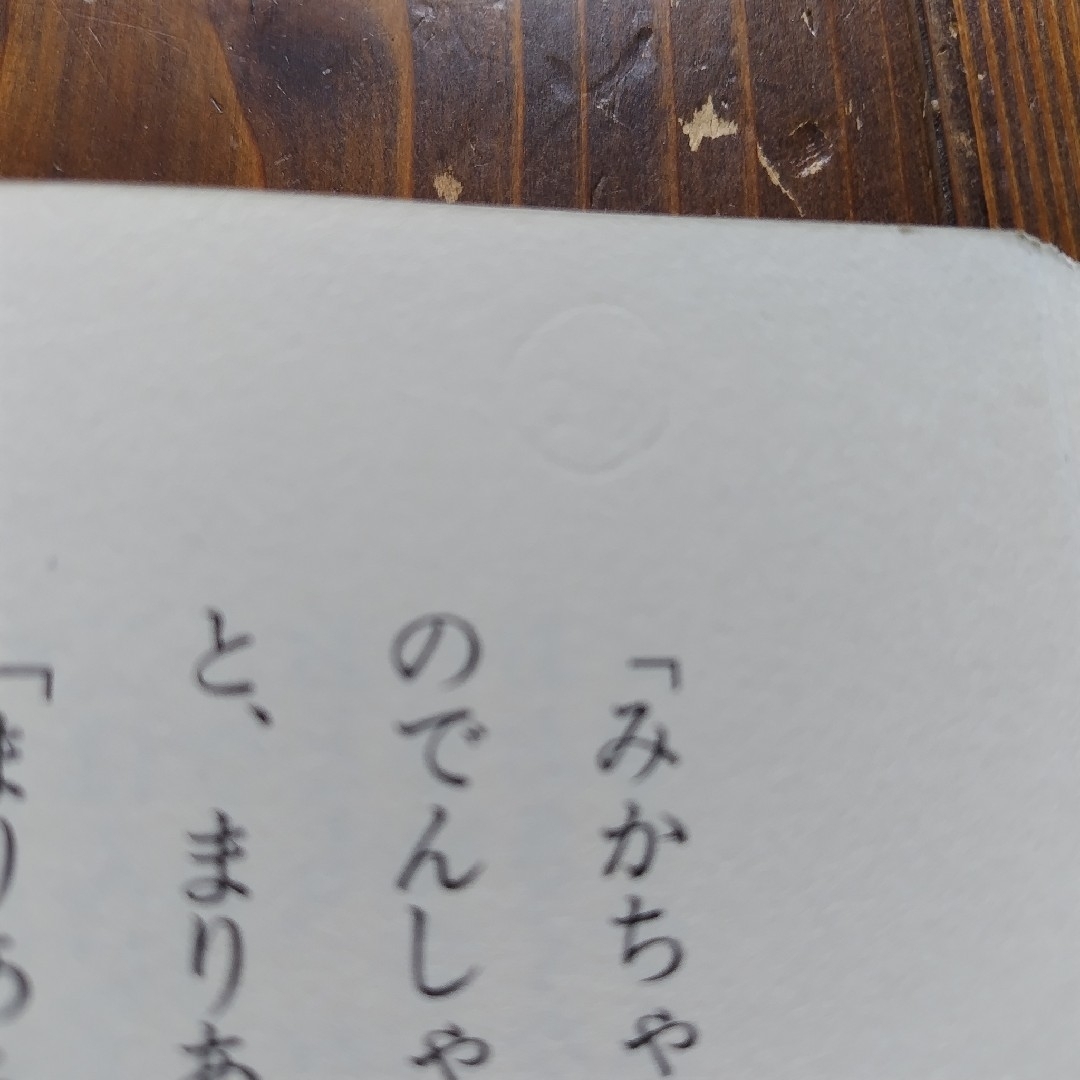 「みかちゃ
のでんしゃ
と、まりあ
「まりあ